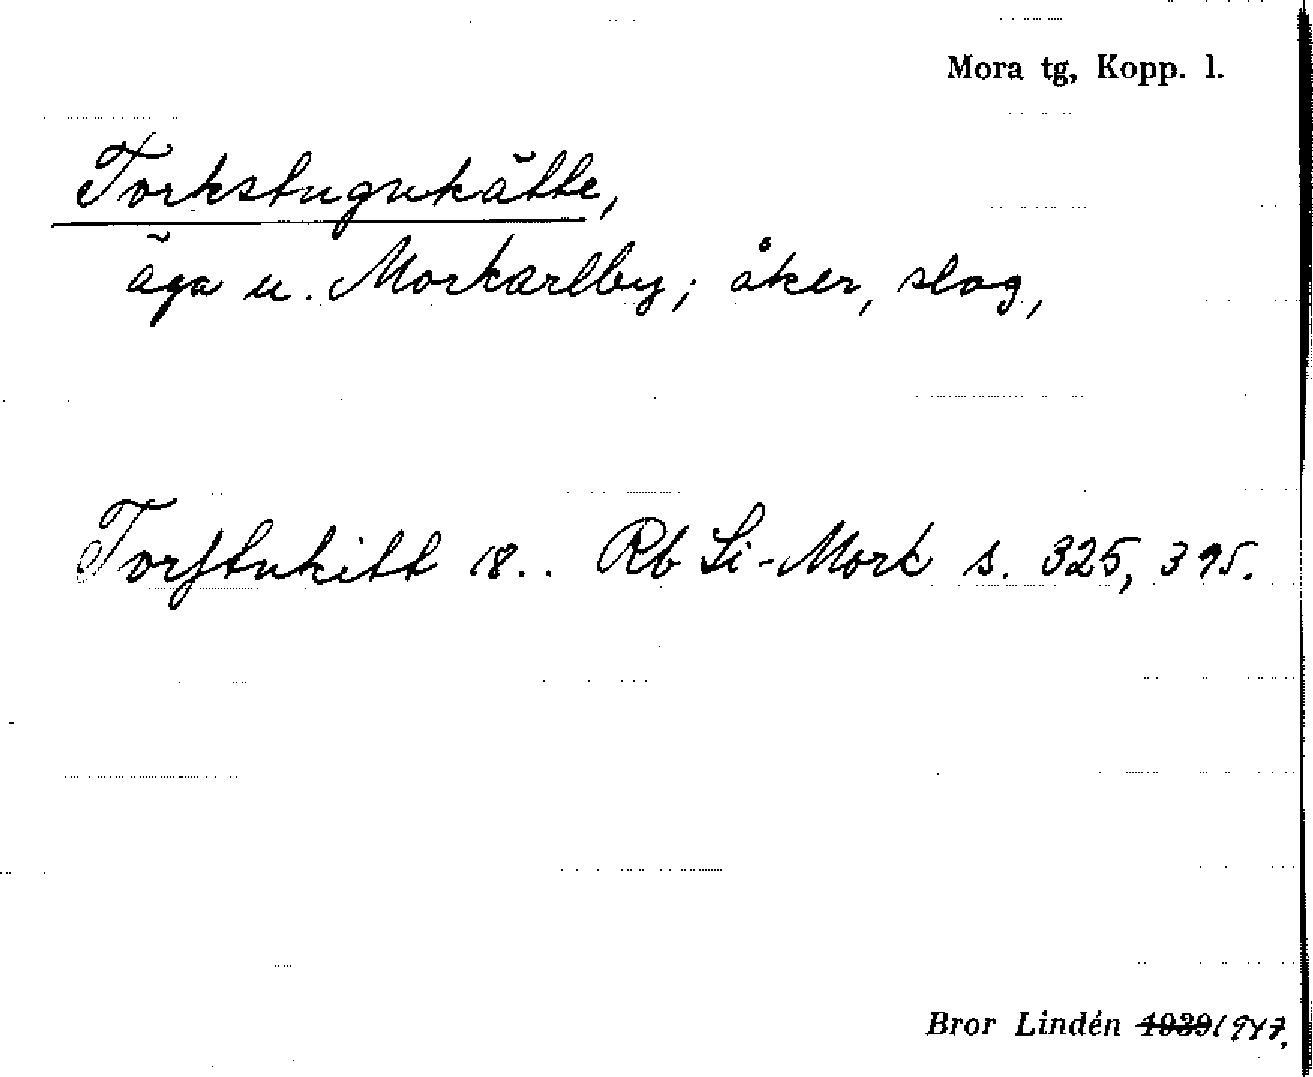 Mora tg, Kopp. l.
Torkstugukätte,
äga u. Morkarlby; åker, slog,
Torstukitt 18.. Rb Si-Mork s. 325, 395.
Bror Lindén 1939 1947.